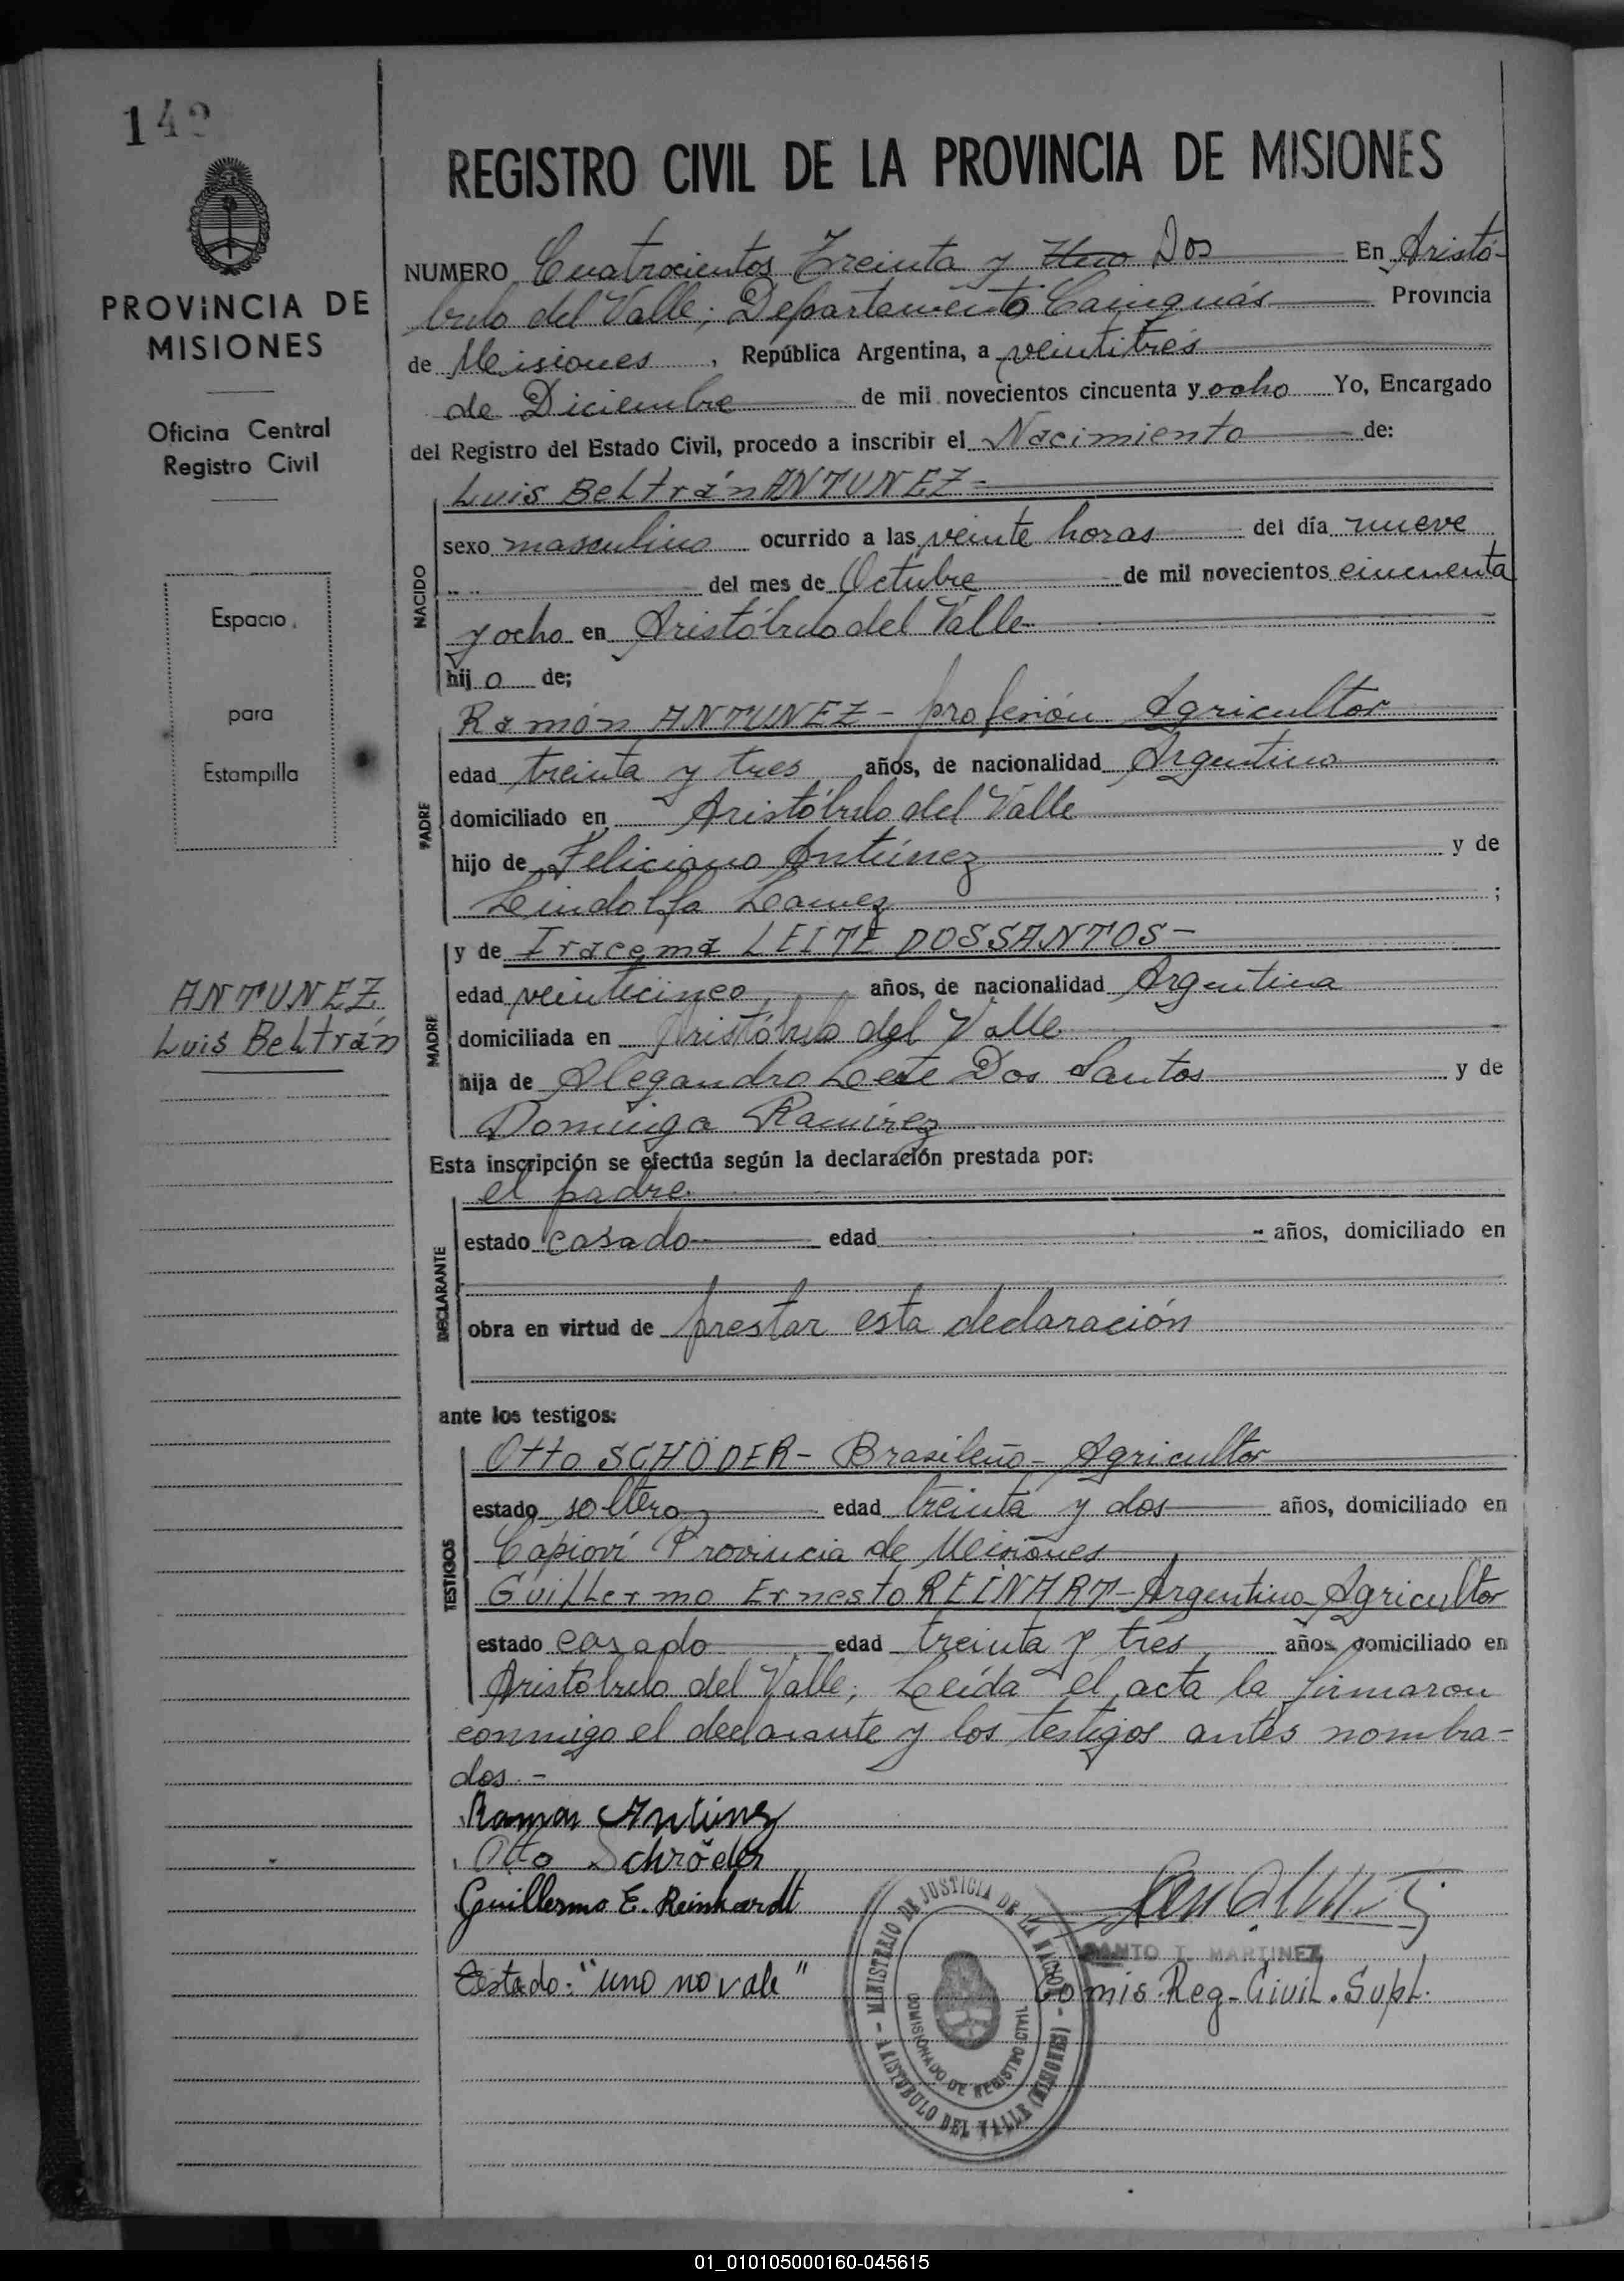 142
PROVINCIA DE
MISIONES
Oficina Central
Registro Civil
Espacio
para
Estampilla
ANTUNEZ
Luis Beltrán
REGISTRO CIVIL DE LA PROVINCIA DE MISIONES
NUMERO Cuatrocientos Treinta y Uno Dos En Aristó-
bulo del Valle; Departamento Cainguás Provincia
de Misiones, República Argentina, a veintitrés
de Diciembre de mil novecientos cincuenta y ocho Yo, Encargado
del Registro del Estado Civil, procedo a inscribir el Nacimiento de:
Luis Beltrán ANTUNEZ-
NACIDO
sexo masculino ocurrido a las veinte horas del día nueve
del mes de Octubre de mil novecientos cincuenta
y ocho en Aristóbulo del Valle
hijo de;
PADRE
Ramón ANTUNEZ - profesión Agricultor
edad treinta y tres años, de nacionalidad Argentina
domiciliado en Aristóbulo del Valle
hijo de Feliciano Antúnez y de
Lindolfa ;
MADRE
y de Iracema LEITE DOSSANTOS-
edad veinticinco años, de nacionalidad Argentina
domiciliada en Aristóbulo del Valle
hija de Alegandro Leite Dos Santos y de
Dominga Ramírez
Esta inscripción se efectúa según la declaración prestada por:
DECLARANTE
el padre.
estado casado edad - años, domiciliado en
obra en virtud de prestar esta declaración
ante los testigos:
TESTIGOS
Otto SCHÖDER- Brasileño- Agricultor
estado soltero edad treinta y dos años, domiciliado en
Capioví Provincia de Misiones
Guillermo Ernesto REINART- Argentino- Agricultor
estado casado edad treinta y tres años domiciliado en
Aristóbulo del Valle; Leída el acta la firmaron
conmigo el declarante y los testigos antes nombra-
dos.-
Ramon Antúnez
Otto Schröder
Guillermo E. Reinhardt
SANTO I. MARTINEZ
Testado: "uno no vale"
Comis. Reg. Civil. Supl.
MINISTERIO DE JUSTICIA DE LA NACION
COMISIONADO DE REGISTRO CIVIL
ARISTOBULO DEL VALLE (MISIONES)
01_010105000160-045615